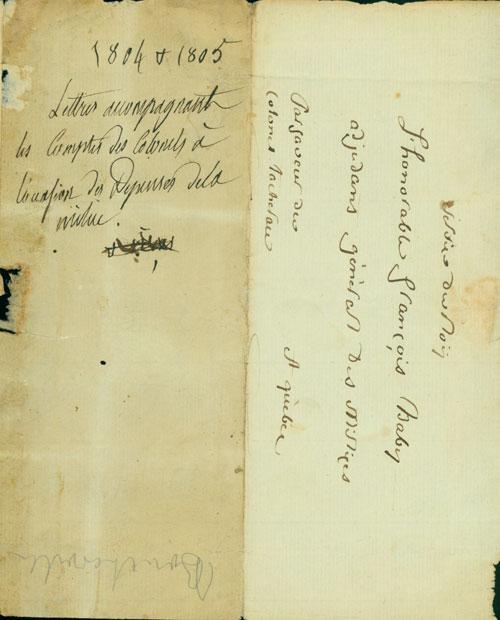 1804 & 1805
Lettres accompagnant
les Comptes des Colonels à
l'occasion des Dépenses de la
milice.
L'honorable François Baby
adjudans général des Milices
A québec
Par faveur du
Colonel
Boucherville